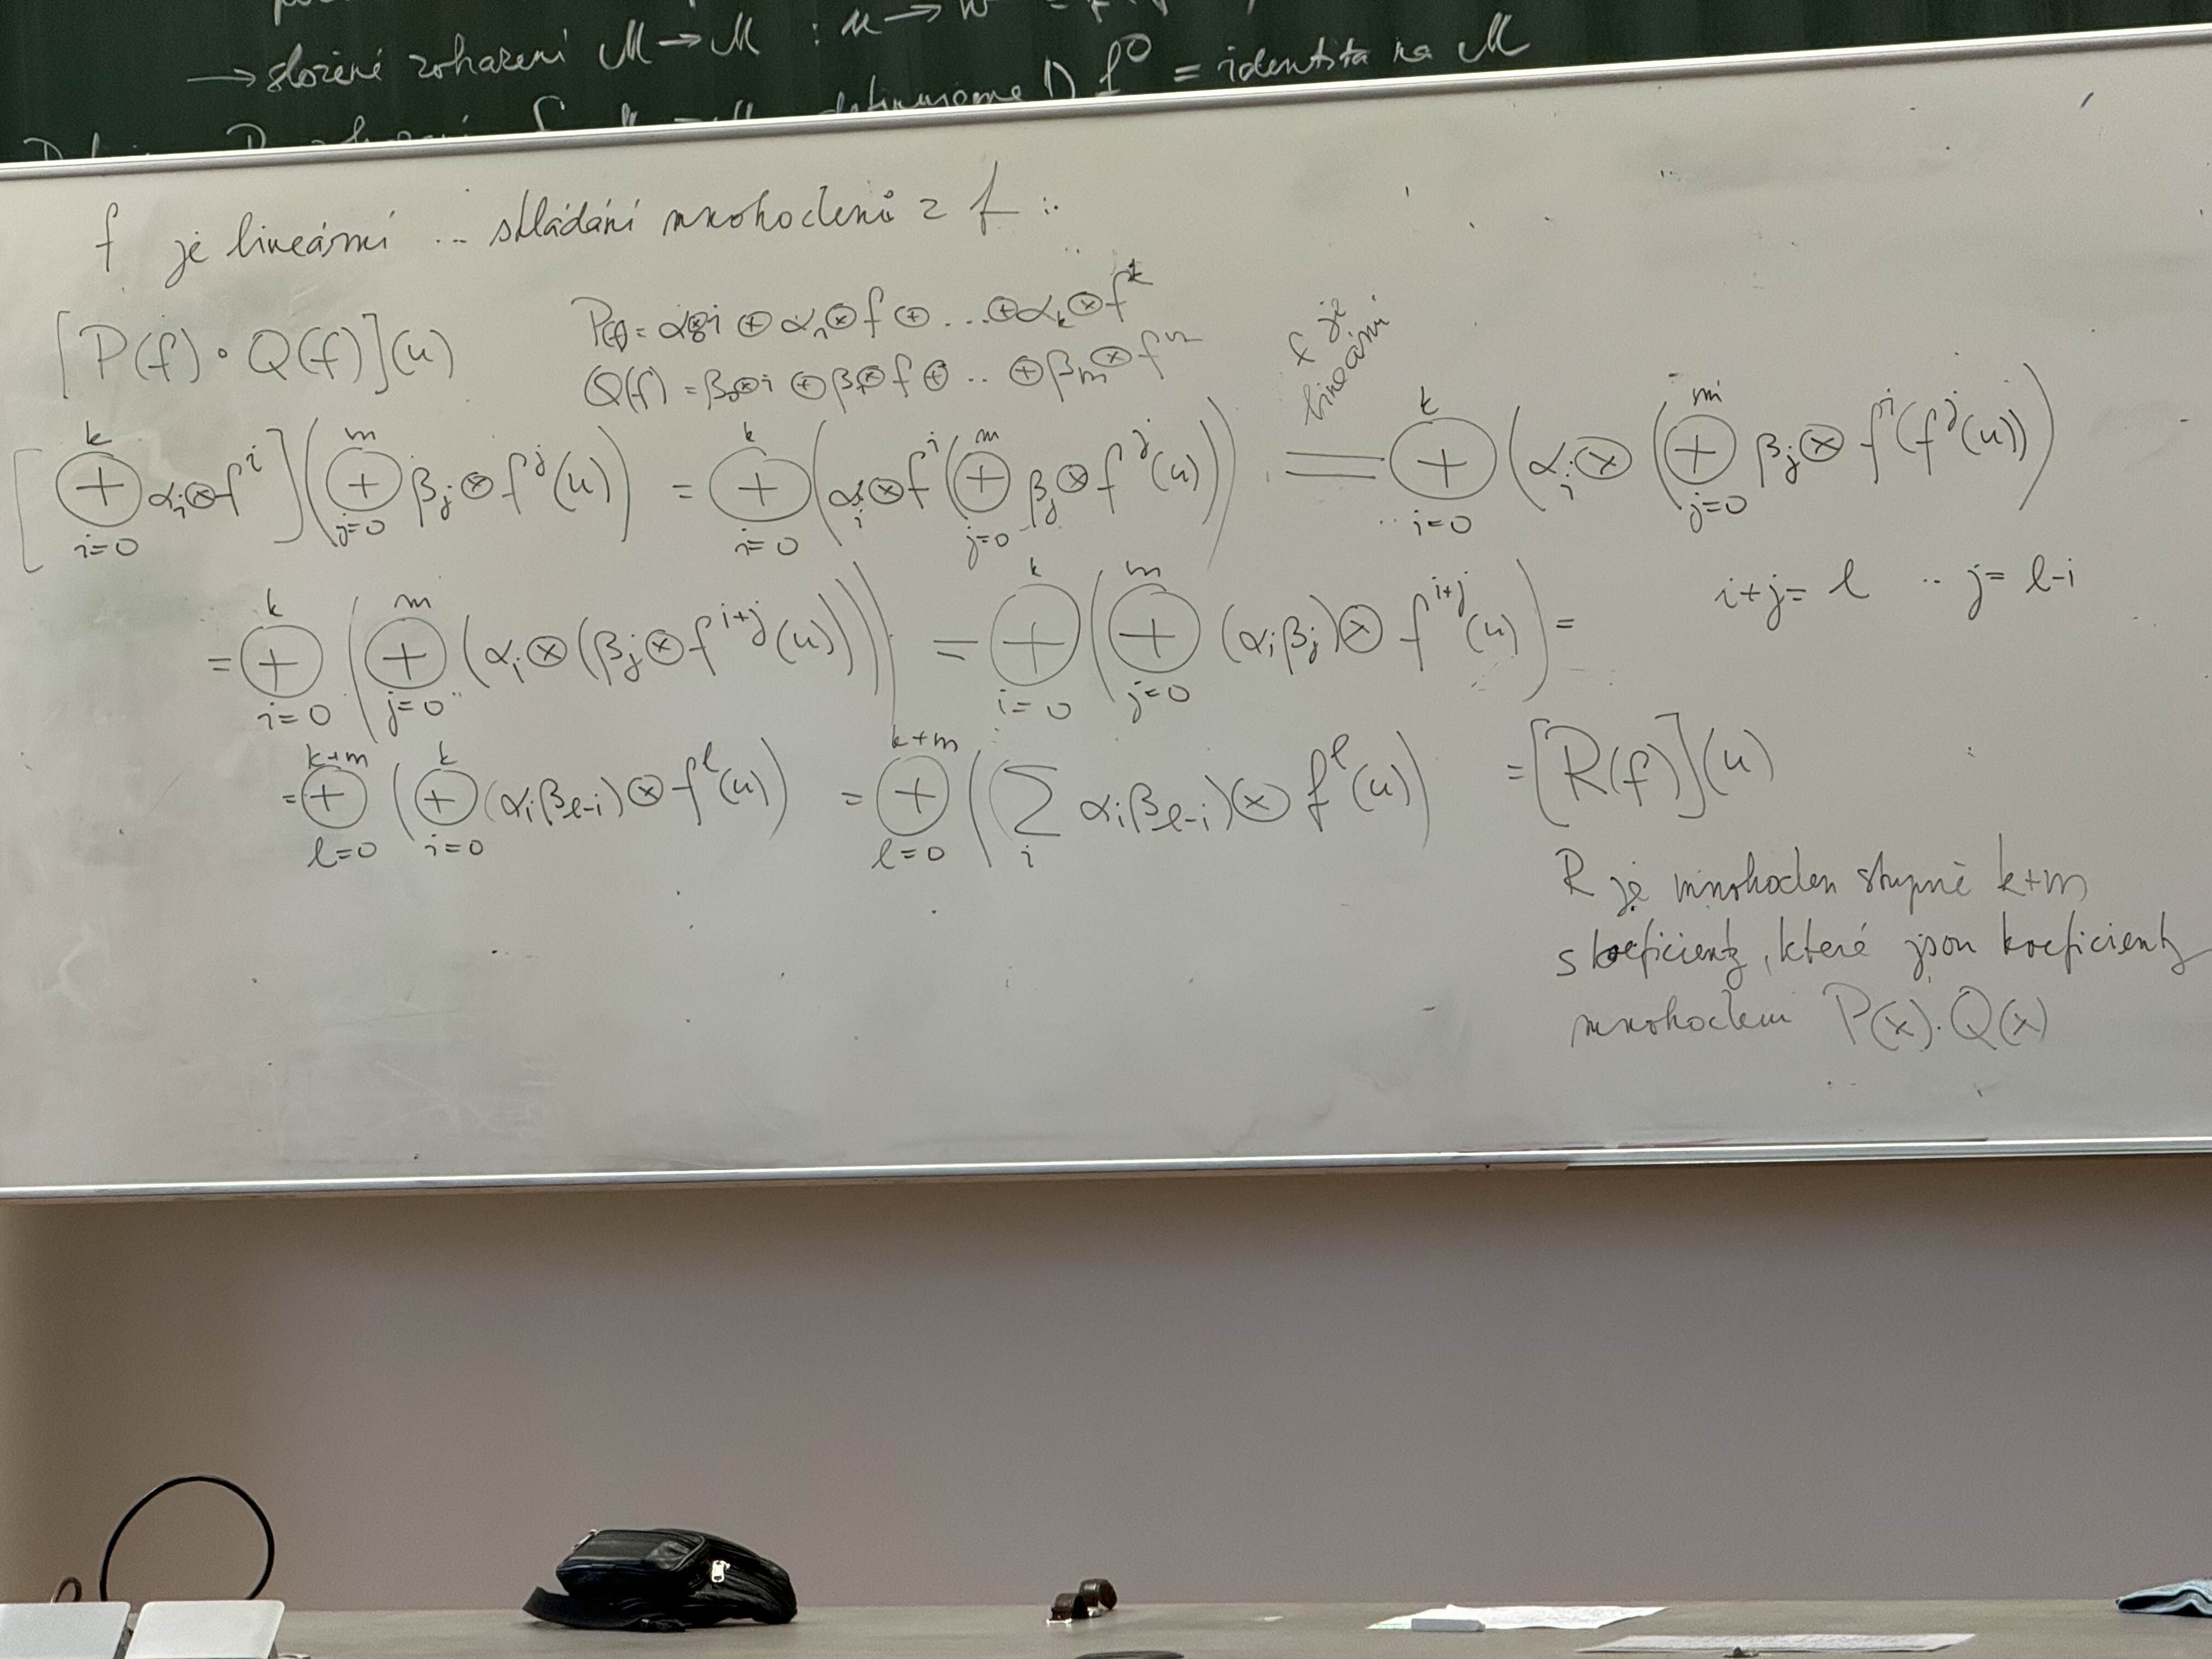 → složené zobrazení M → M : u → w =
1) f⁰ = identita na M
f je lineární ... skládání mnohočlenů z f :
[P(f) ∘ Q(f)](u)
P(f) = α₀⊗i ⊕ α₁⊗f ⊕ ... ⊕ αₖ⊗fᵏ
Q(f) = β₀⊗i ⊕ β₁⊗f ⊕ .. ⊕ βₘ⊗fᵐ
[⊕_{i=0}^{k} αᵢ⊗fⁱ](⊕_{j=0}^{m} βⱼ⊗fʲ(u)) = ⊕_{i=0}^{k} (αᵢ⊗fⁱ(⊕_{j=0}^{m} βⱼ⊗fʲ(u))) = f je lineární ⊕_{i=0}^{k} (αᵢ⊗(⊕_{j=0}^{m} βⱼ⊗fⁱ(fʲ(u)))
= ⊕_{i=0}^{k} (⊕_{j=0}^{m} (αᵢ⊗(βⱼ⊗f^{i+j}(u)))) = ⊕_{i=0}^{k} (⊕_{j=0}^{m} (αᵢβⱼ)⊗f^{i+j}(u)) = i+j = l .. j = l-i
= ⊕_{l=0}^{k+m} (⊕_{i=0}^{k} (αᵢβ_{l-i})⊗f^l(u)) = ⊕_{l=0}^{k+m} ((∑_{i} αᵢβ_{l-i})⊗f^l(u)) = [R(f)](u)
R je mnohočlen stupně k+m
s koeficienty, které jsou koeficienty
mnohočlenu P(x).Q(x)